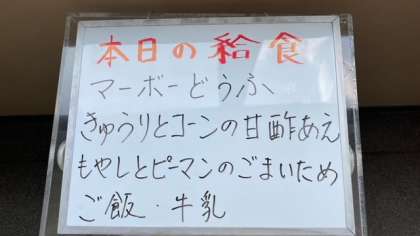 本日の給食
マーボーどうふ
きゅうりとコーンの甘酢あえ
もやしとピーマンのごまいため
ご飯・牛乳